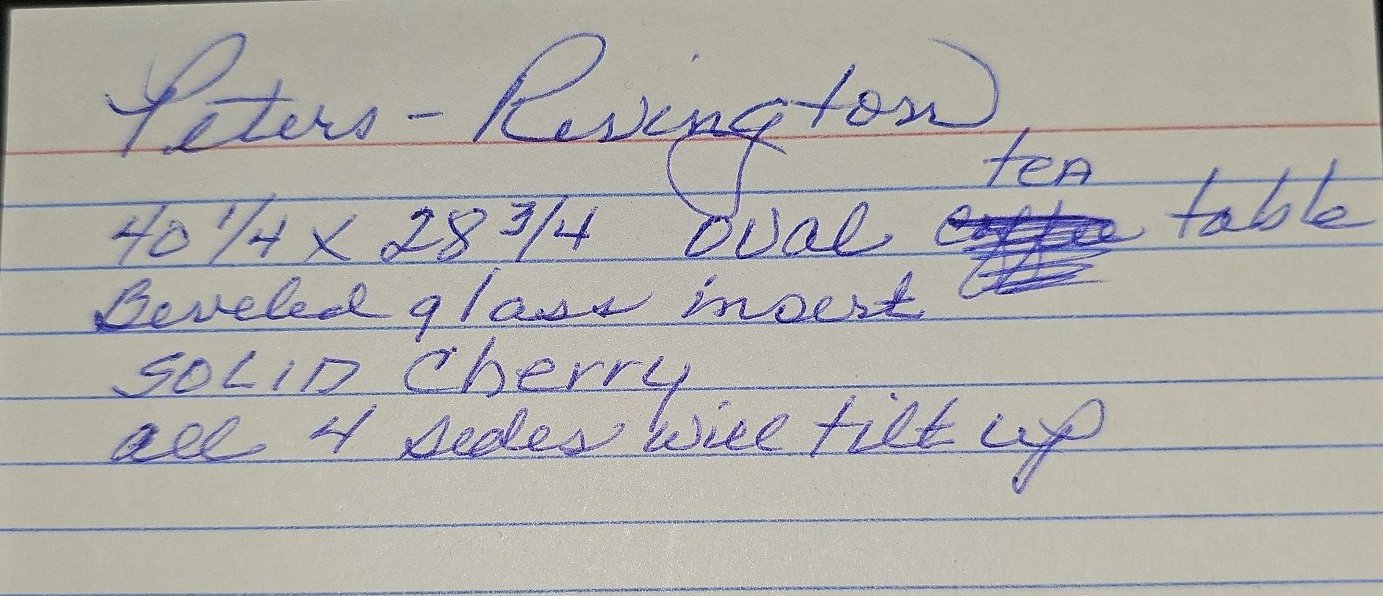 Peters - Revington
40 1/4 x 28 3/4 oval tea table
Beveled glass insert
SOLID Cherry
all 4 sides will tilt up